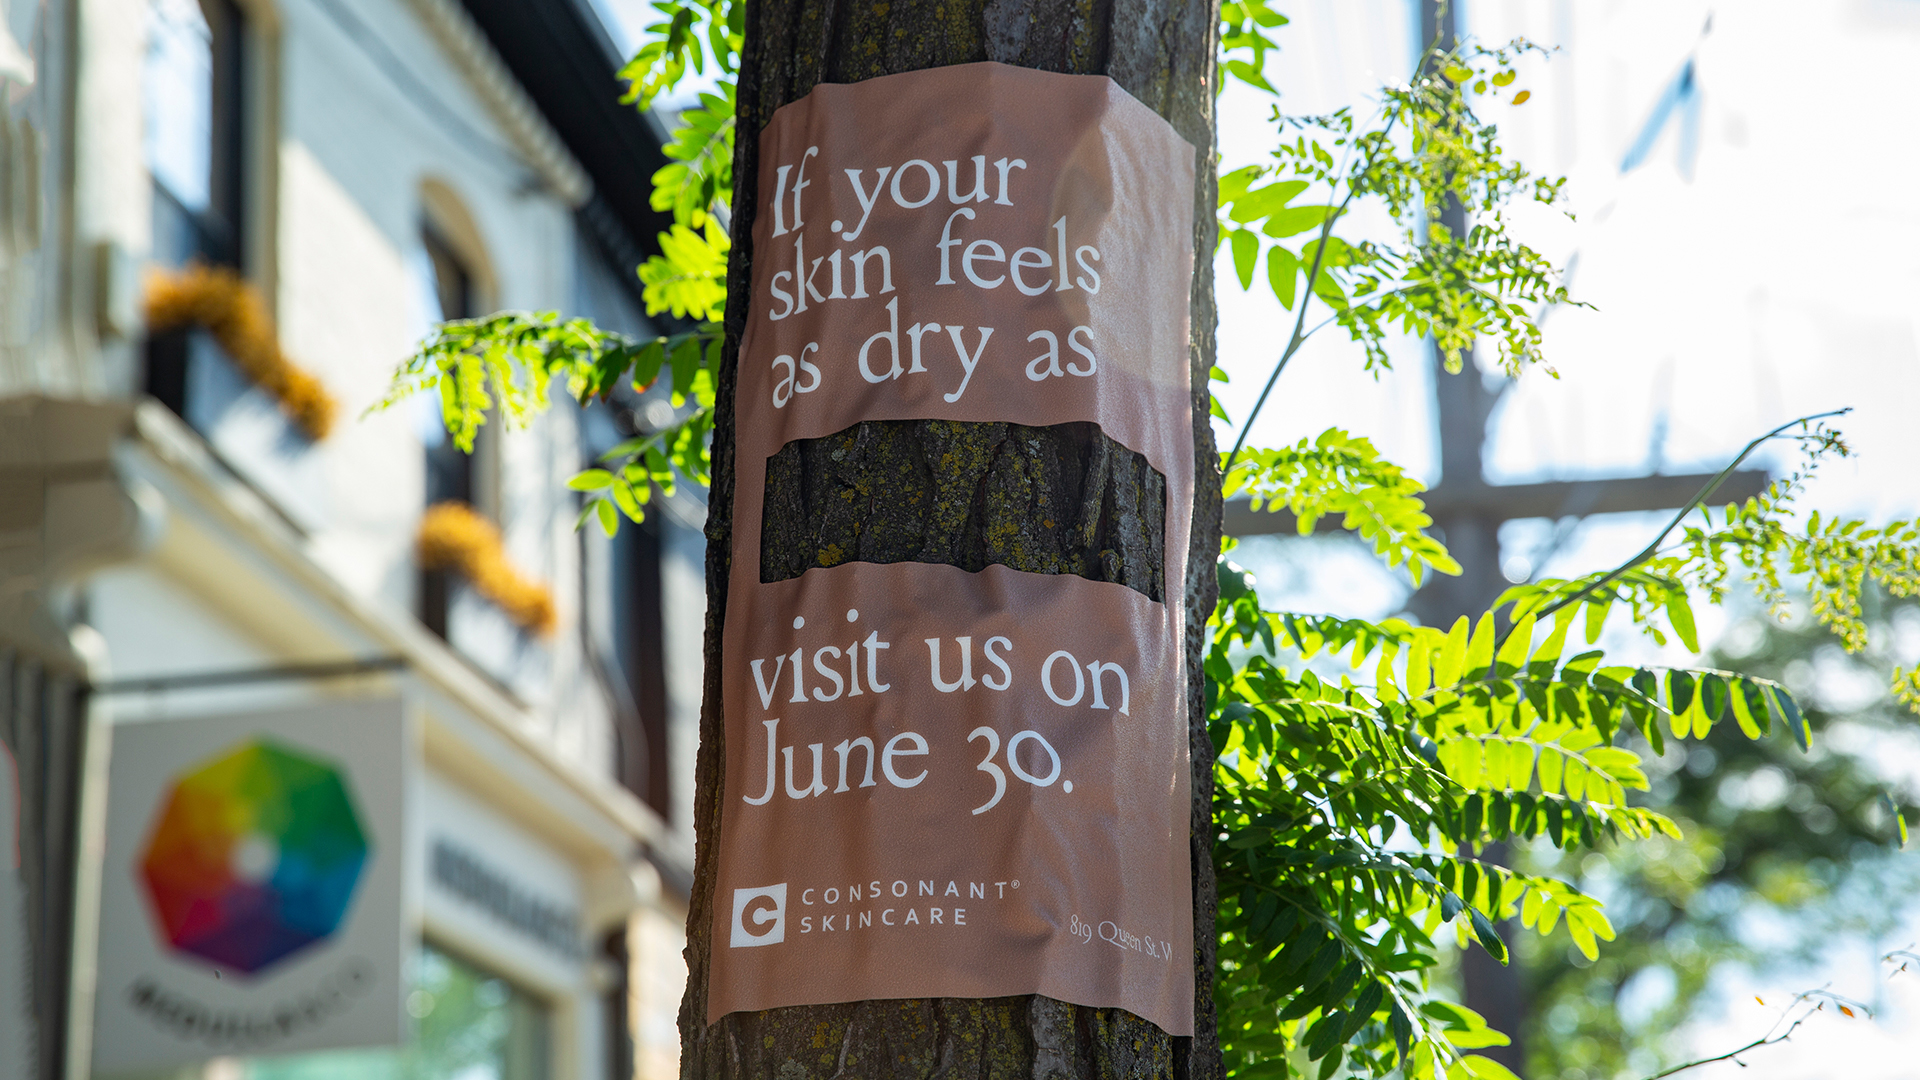 If your
skin feels
as dry as
visit us on
June 30.
CONSONANT®
SKINCARE
819 Queen St. W